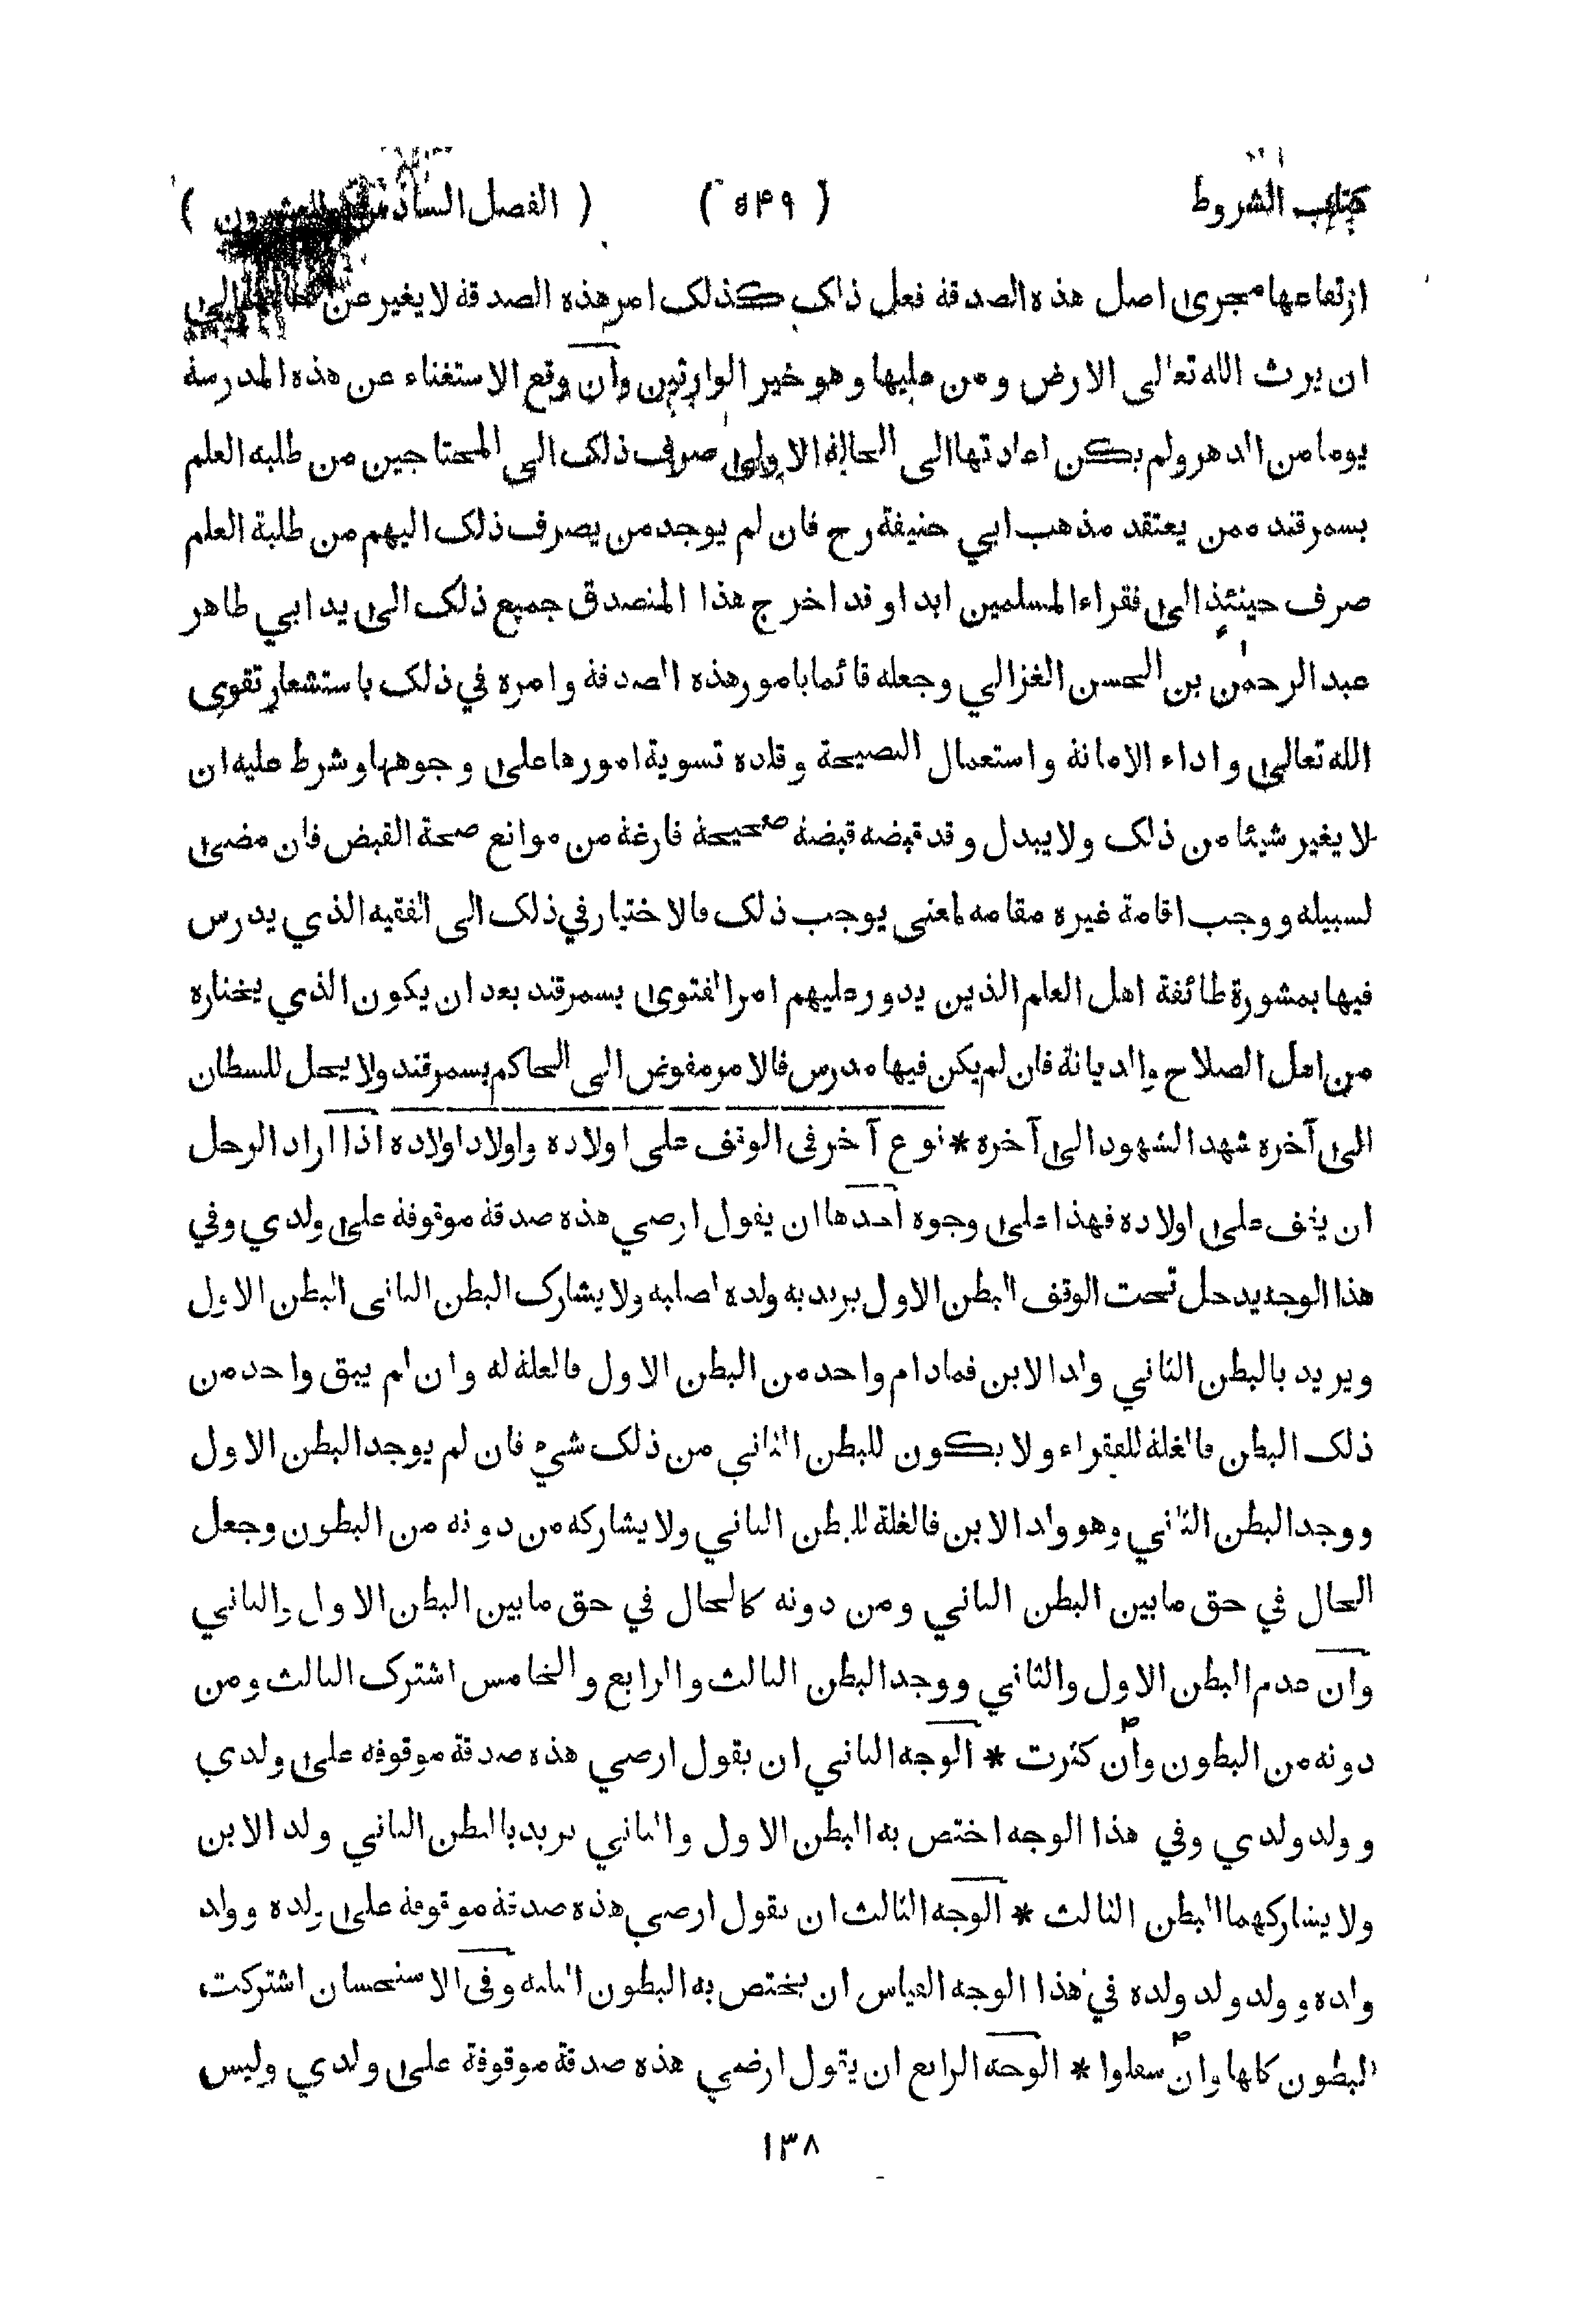 كتاب الشروط ( ۵۴۹ ) ( الفصل السادس والعشرون )
ارتفاعها مجرى اصل هذه الصدقة فعل ذلك كذلك امر هذه الصدقة لا يغير عن الى
ان يرث الله تعالى الارض و من عليها و هو خير الوارثين وان وقع الاستغناء عن هذه المدرسة
يوما من الدهر ولم يكن اعادتها الى الحالة الاولى صرف ذلك الى المحتاجين من طلبه العلم
بسمرقند ممن يعتقد مذهب ابي حنيفة رح فان لم يوجد من يصرف ذلك اليهم من طلبة العلم
صرف حينئذ الى فقراء المسلمين ابدا و قد اخرج هذا المتصدق جميع ذلك الى يد ابي طاهر
عبد الرحمن بن الحسن الغزالي وجعله قائما بامور هذه الصدقة وامره في ذلك باستشعار تقوى
الله تعالى و اداء الامانة واستعمال النصيحة وقلده تسوية امورها على وجوهها و شرط عليه ان
لا يغير شيئا من ذلك ولا يبدل وقد قبضه قبضة صحيحة فارغة من موانع صحة القبض فان مضى
لسبيله ووجب اقامة غيره مقامه لمعنى يوجب ذلك فالاختيار في ذلك الى الفقيه الذي يدرس
فيها بمشورة طائفة اهل العلم الذين يدور عليهم امر الفتوى بسمرقند بعد ان يكون الذي يختاره
من اهل الصلاح والديانة فان لم يكن فيها مدرس فالامر مفوض الى الحاكم بسمرقند ولا يحل للسطان
الى آخره شهد الشهود الى آخره * نوع آخر في الوقف على اولاده واولاد اولاده اذا اراد الرجل
ان يقف على اولاده فهذا على وجوه احدها ان يقول ارضي هذه صدقة موقوفة على ولدي وفي
هذا الوجه يدخل تحت الوقف البطن الاول يريد به ولده لصلبه ولا يشارك البطن الثاني البطن الاول
ويريد بالبطن الثاني ولد الابن فمادام واحد من البطن الاول فالغلة له وان لم يبق واحد من
ذلك البطن فالغلة للفقراء ولا يكون للبطن الثاني من ذلك شيء فان لم يوجد البطن الاول
ووجد البطن الثاني وهو ولد الابن فالغلة للبطن الثاني ولا يشاركه من دونه من البطون وجعل
الحال في حق مابين البطن الثاني ومن دونه كالحال في حق مابين البطن الاول والثاني
وان عدم البطن الاول والثاني ووجد البطن الثالث والرابع والخامس اشترك الثالث ومن
دونه من البطون وان كثرت * الوجه الثاني ان يقول ارضي هذه صدقة موقوفه على ولدي
وولد ولدي وفي هذا الوجه اختص به البطن الاول والثاني يريد بالبطن الثاني ولد الابن
ولا يشاركهما البطن الثالث * الوجه الثالث ان يقول ارضي هذه صدقة موقوفة على ولده وولد
ولده وولد ولد ولده في هذا الوجه القياس ان يختص به البطون الثلثه وفى الاستحسان اشتركت
البطون كلها وان سفلوا * الوجه الرابع ان يقول ارضي هذه صدقة موقوفة على ولدي وليس
۱۳۸